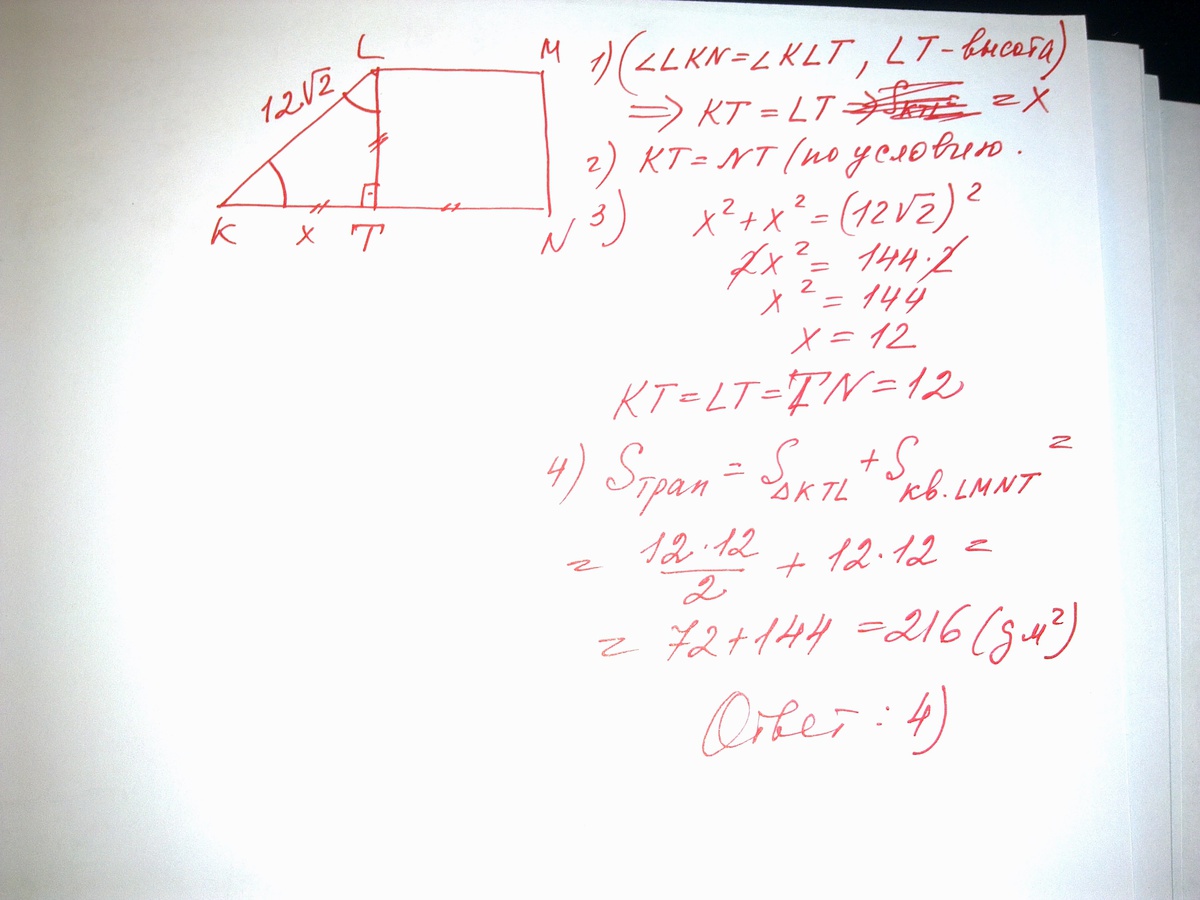 L
M
12√2
K
x
T
N
1) (∠LKN=∠KLT, LT-высота)
⇒ KT = LT = x
2) KT = NT (по условию.
3) x² + x² = (12√2)²
2x² = 144·2
x² = 144
x = 12
KT = LT = TN = 12
4) Sтрап = S∆KTL + Sкв. LMNT =
= 12·12/2 + 12·12 =
= 72+144 = 216 (дм²)
Ответ: 4)